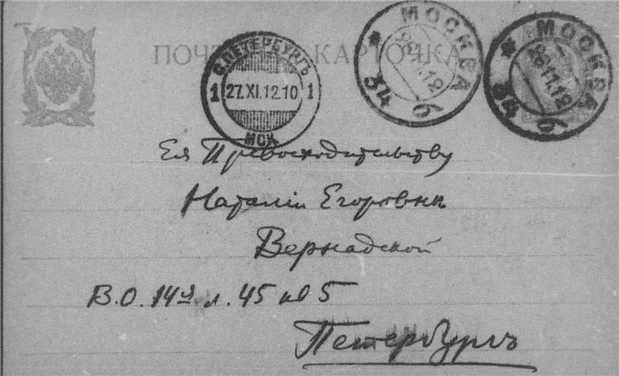 ПОЧТОВАЯ КАРТОЧКА
С.ПЕТЕРБУРГЪ
1 27.XI.12.10 1
МСК
МОСКВА
26 11.12
34 б
МОСКВА
26 11.12
34 б
Ея Превосходительству
Наталіи Егоровнѣ
Вернадской
В.О. 14я л. 45 кв 5
Петербургъ